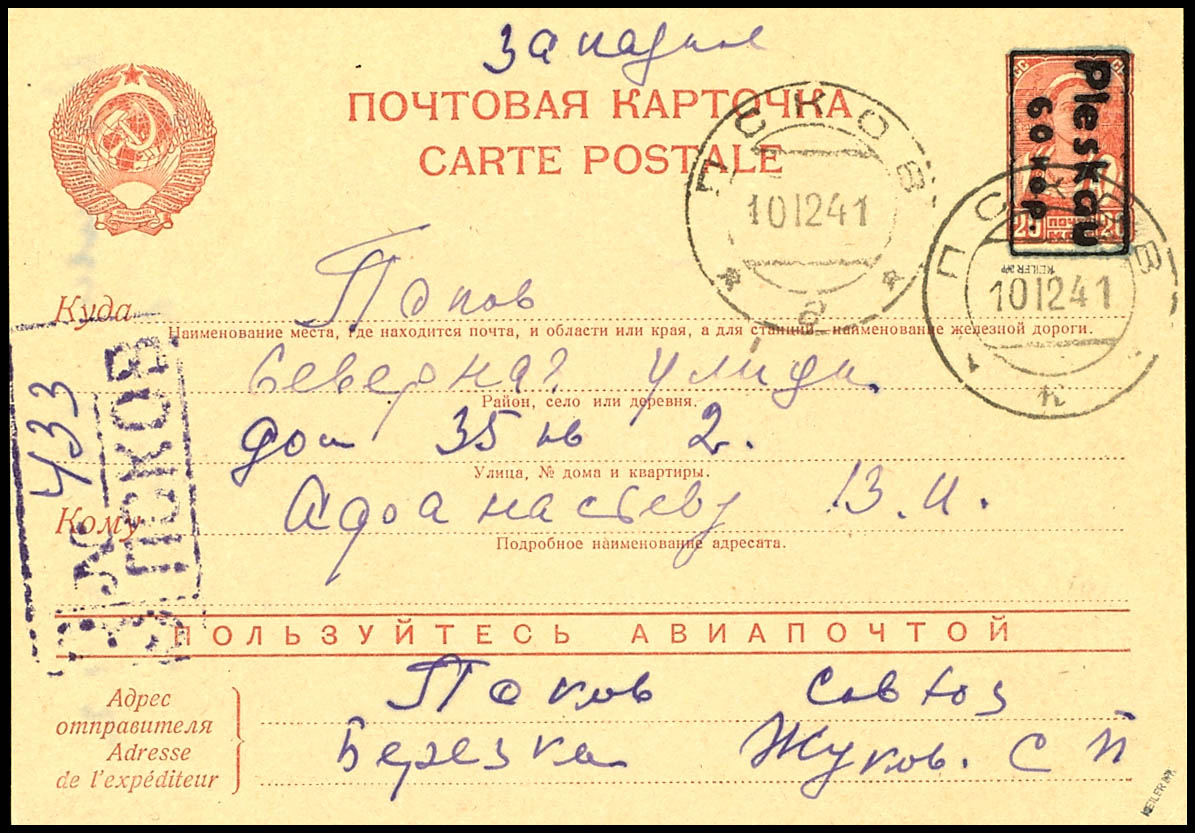 Западне
ПОЧТОВАЯ КАРТОЧКА
CARTE POSTALE
Pleskau
60 коp.
ПСКОВ
101241
ПСКОВ
101241
Куда Псков
Наименование места, где находится почта, и области или края, а для станций—наименование железной дороги.
Северная улица
Район, село или деревня.
дом 35 кв 2.
Улица, № дома и квартиры.
Кому Афанасьеву В. И.
Подробное наименование адресата.
433
ПСКОВ
ПОЛЬЗУЙТЕСЬ АВИАПОЧТОЙ
Адрес
отправителя
Adresse
de l'expéditeur
Псков Совхоз
Березка Жуков. С П